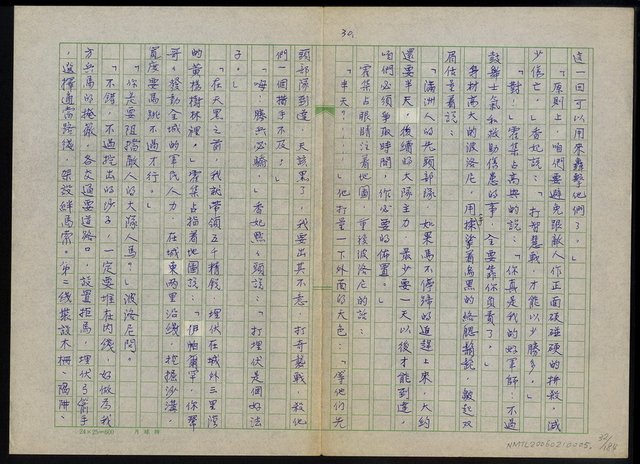 30.
這一回可以用來轟擊他們了。」
「原則上,咱們要避免跟敵人作正面硬碰硬的拼殺,減
少傷亡。」香妃說:「打智慧戰,才能以少勝多。」
「對!」霍集占高興的說:「你真是我的好軍師!不過
鼓舞士氣和救助傷患的事,全要靠你負責了。」
身材高大的波洛尼,用手揉著烏黑的絡腮鬍鬚,皺起双
眉估量着說:
「滿洲人的先頭部隊,如果馬不停蹄的追趕上來,大約
還要半天,後續的大隊主力,最少要一天以後才能到達,
咱們必須爭取時間,作必要的佈置。」
霍集占眼睛注着地圖,重複波洛尼的話:
「半天?……」他打量一下外面的天色:「等他們先
頭部隊到達,天該黑了,我要出其不意,打奇襲戰,殺他
們一個措手不及!」
「嗯!驕兵必敗。」香妃點頭說:「打埋伏是個好法
子。」
「在天黑之前,我就帶領五千精銳,埋伏在城外三里灣
的黃楊樹林裡。」霍集占指着地圖說:「伊帕爾罕,你幫
哥發動全城的軍民人力,在城東兩里沿線,挖掘沙溝,
寬度要馬跳不過才行。」
「你是要阻擋敵人的大隊人馬?」波洛尼問。
「不錯,不過挖出的沙子,一定要堆在內線,好做為我
方兵馬的掩蔽,各交通要道路口,設置拒馬,埋伏弓箭手
,選擇適當路線,架設絆馬索。第二線裝設木柵、陷阱、
24×25=600
月球牌
32/184
NMTL20050210005